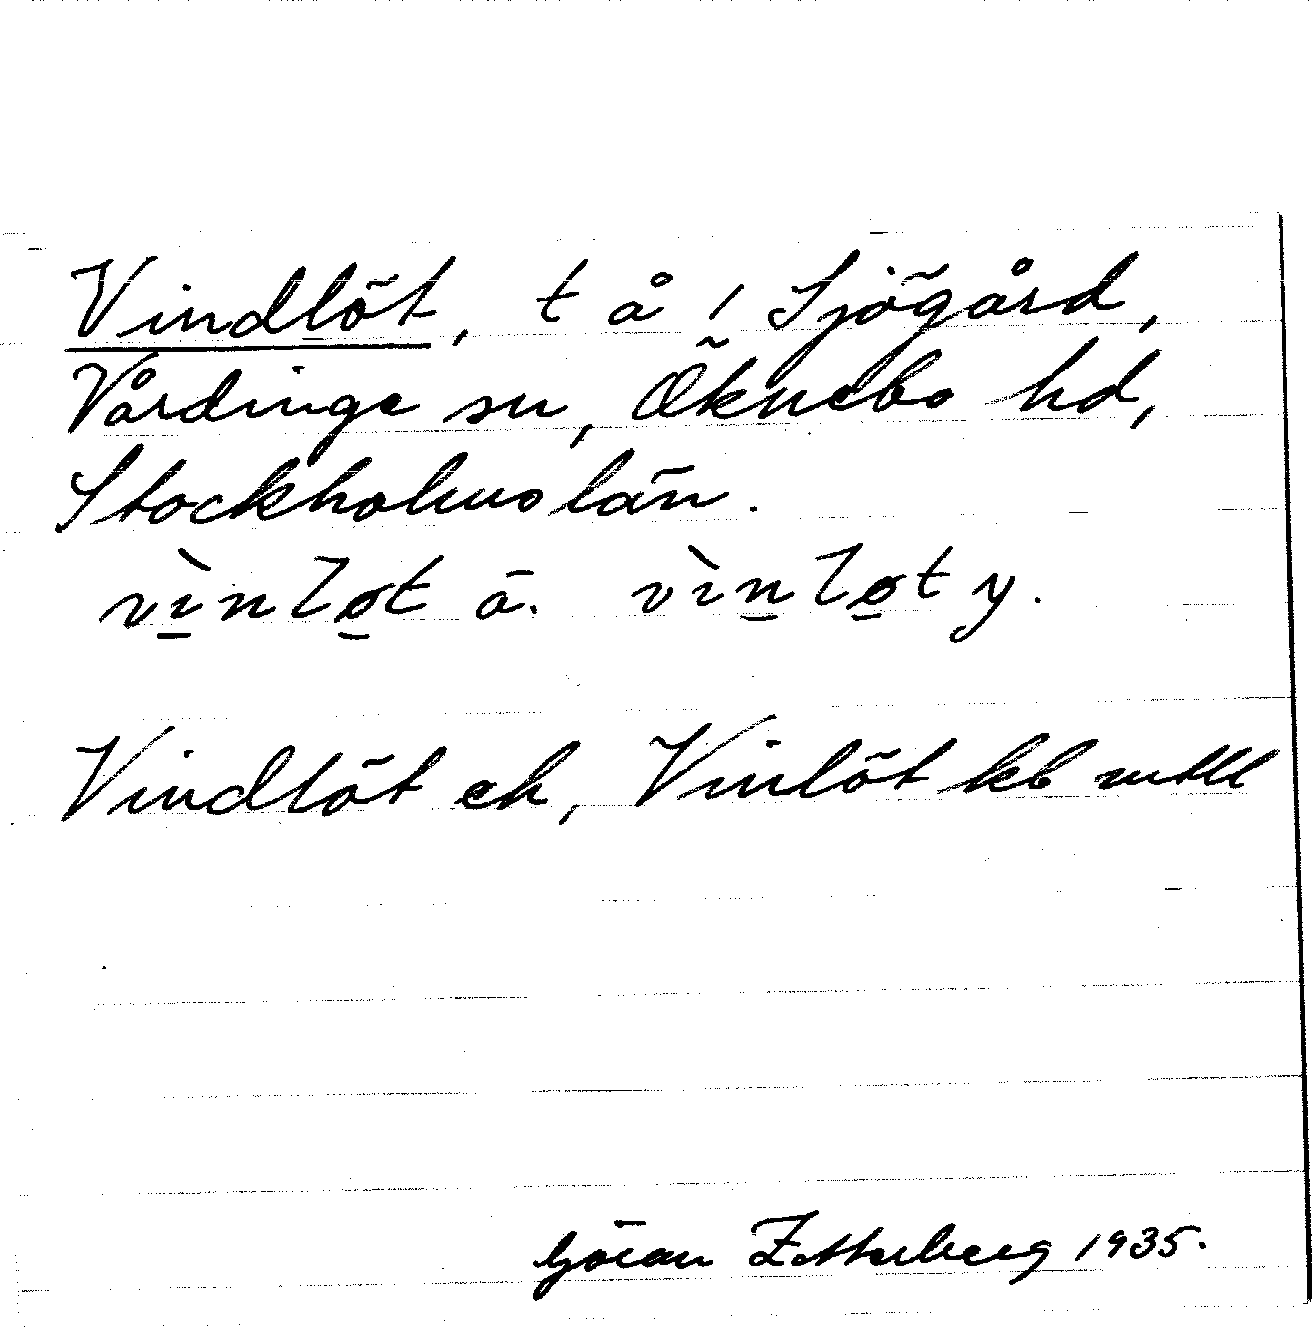 Vindlöt, t å 1 Sjögård,
Vårdinge sn, Öknebo hd,
Stockholms län.
vìnløt ä. vìnløt y.
Vindlöt ek, Vinlöt kb mtll
Göran Zetterberg 1935.